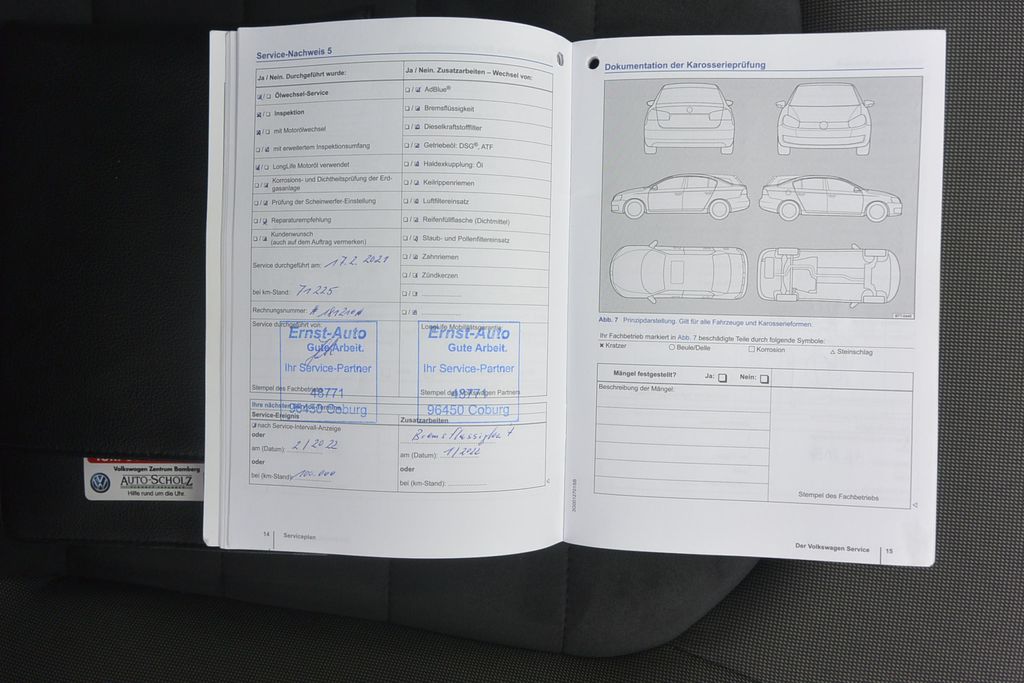 Service-Nachweis 5
Ja / Nein. Durchgeführt wurde:
Ölwechsel-Service
Inspektion
mit Motorölwechsel
mit erweitertem Inspektionsumfang
LongLife Motoröl verwendet
Korrosions- und Dichtheitsprüfung der Erd-
gasanlage
Prüfung der Scheinwerfer-Einstellung
Reparaturempfehlung
Kundenwunsch
(auch auf dem Auftrag vermerken)
Service durchgeführt am: 17.2.2021
bei km-Stand: 71225
Rechnungsnummer:
Service durchgeführt von:
Ernst-Auto
Gute Arbeit.
Ihr Service-Partner
48771
96450 Coburg
Stempel des Fachbetriebs
Ja / Nein. Zusatzarbeiten – Wechsel von:
AdBlue®
Bremsflüssigkeit
Dieselkraftstofffilter
Getriebeöl: DSG®, ATF
Haldexkupplung: Öl
Keilrippenriemen
Luftfiltereinsatz
Reifenfüllflasche (Dichtmittel)
Staub- und Pollenfiltereinsatz
Zahnriemen
Zündkerzen
LongLife Mobilitätsgarantie
Ernst-Auto
Gute Arbeit.
Ihr Service-Partner
48771
96450 Coburg
Stempel des Volkswagen Partners
Ihre nächsten Service-Termine
Service-Ereignis
nach Service-Intervall-Anzeige
oder
am (Datum): 2/2022
oder
bei (km-Stand): 100.000
Zusatzarbeiten
Bremsflüssigkeit
am (Datum): 1/2022
oder
bei (km-Stand):
14 Serviceplan
Dokumentation der Karosserieprüfung
Abb. 7 Prinzipdarstellung. Gilt für alle Fahrzeuge und Karosserieformen.
Ihr Fachbetrieb markiert in Abb. 7 beschädigte Teile durch folgende Symbole:
× Kratzer ○ Beule/Delle □ Korrosion △ Steinschlag
Mängel festgestellt? Ja: Nein:
Beschreibung der Mängel:
Stempel des Fachbetriebs
Der Volkswagen Service 15
Volkswagen Zentrum Bamberg
AUTO-SCHOLZ
Hilfe rund um die Uhr.